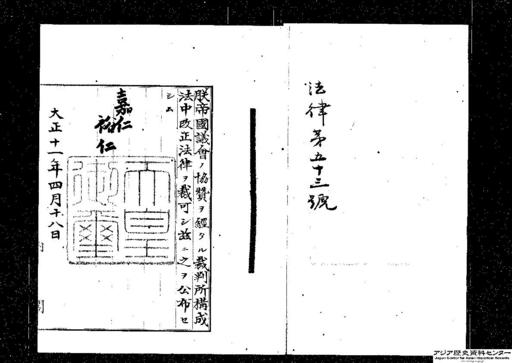 法律第五十三號
朕帝國議會ノ協贊ヲ經タル裁判所構成
法中改正法律ヲ裁可シ茲ニ之ヲ公布セ
シム
嘉仁
裕仁
天皇御璽
大正十一年四月十八日
アジア歴史資料センター
Japan Center for Asian Historical Records